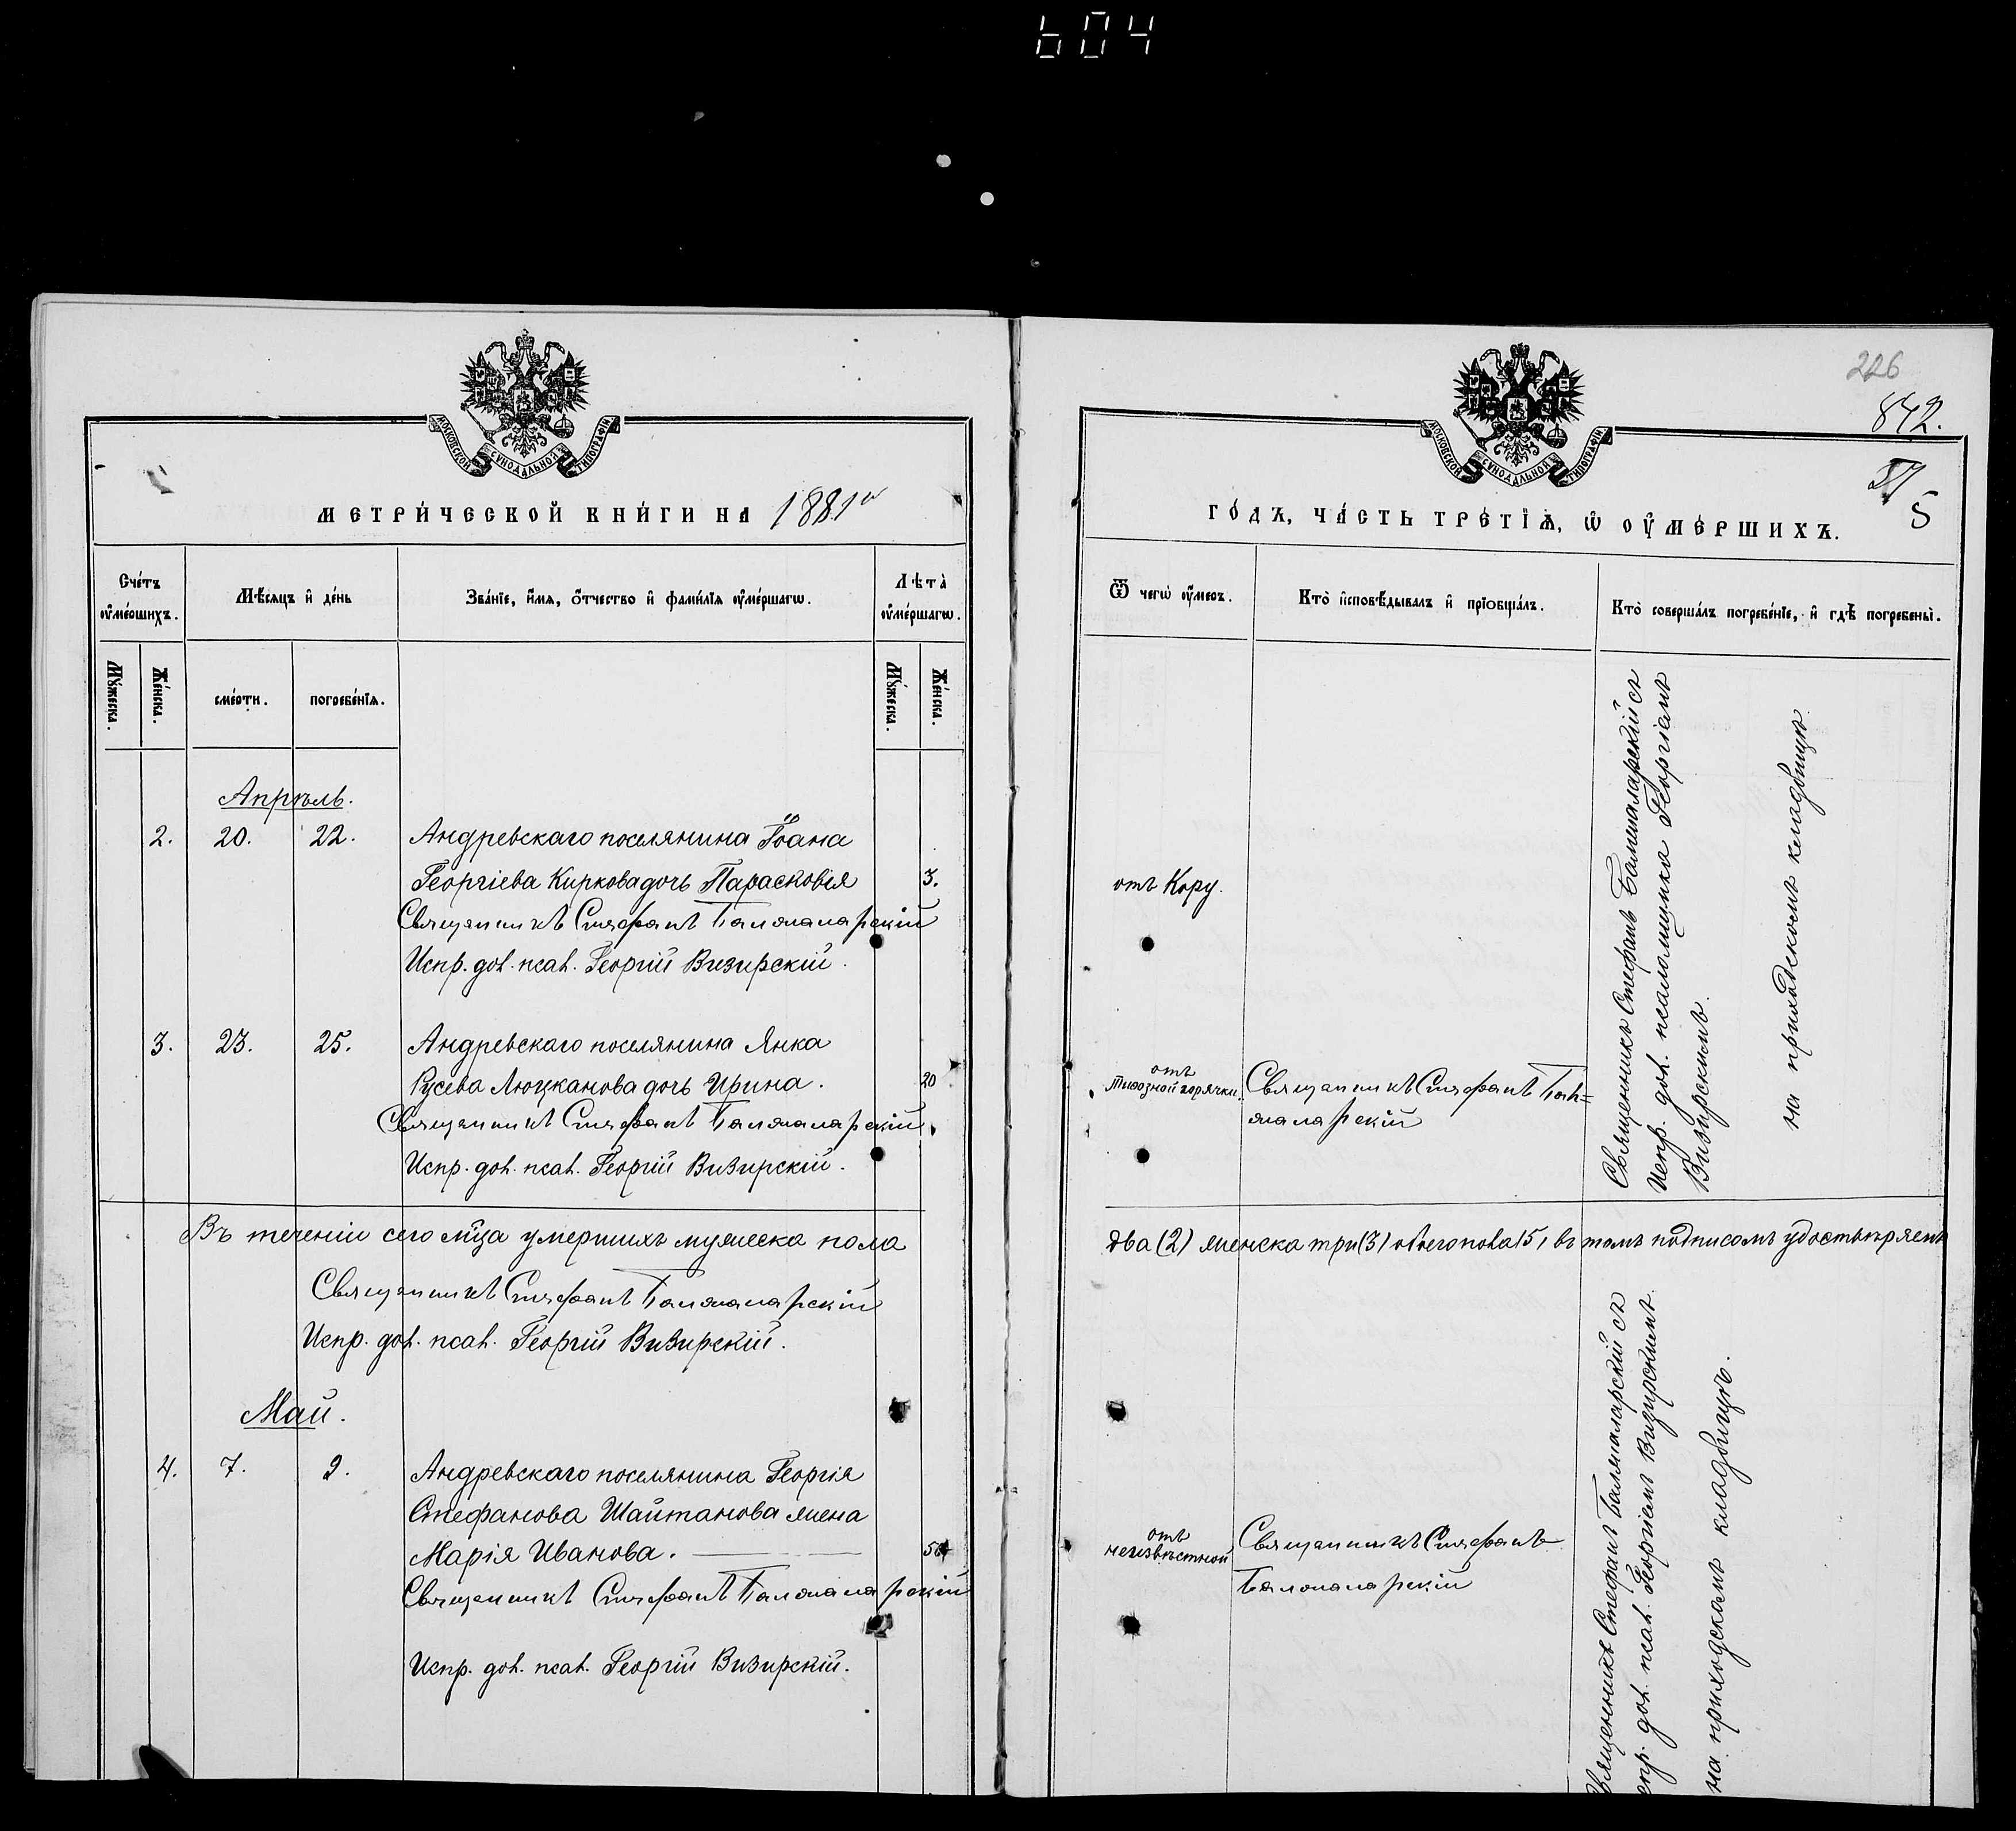 604
226
842.
5
МОСКОВСКОЙ СѴНОДАЛЬНОЙ ТИПОГРАФІИ.
МЕТРИ́ЧЕСКОЙ КНИ́ГИ НА 1881й
Сче́тъ ᲂу҆ме́ршихъ.
Мѣ́сяцъ и҆ де́нь
Зва́нїе, и҆́мѧ, ѻ҆́тчество и҆ фами́лїѧ ᲂу҆ме́ршагѡ.
Лѣта̀ ᲂу҆ме́ршагѡ.
Мꙋ́жеска.
Же́нска.
сме́рти.
погребе́нїѧ.
Мꙋ́жеска.
Же́нска.
Апрѣль.
2. 20. 22. Андревскаго поселянина Іоана
Георгіева Киркова дочь Парасковія 3.
Священникъ Стефанъ Балжаларскій
Испр. дол. псал. Георгій Визирскій.
3. 23. 25. Андревскаго поселянина Янка
Русева Люцканова дочь Ирина. 20
Священникъ Стефанъ Балжаларскій
Испр. дол. псал. Георгій Визирскій.
Въ теченіи сего мца умершихъ мужеска пола
Священникъ Стефанъ Балжаларскій
Испр. дол. псал. Георгій Визирскій.
Май.
4. 7. 9. Андревскаго поселянина Георгія
Стефанова Шайтанова жена
Марія Иванова.
Священникъ Стефанъ Балжаларскій
Испр. дол. псал. Георгій Визирскій.
МОСКОВСКОЙ СѴНОДАЛЬНОЙ ТИПОГРАФІИ.
ГО́ДЪ, ЧА́СТЬ ТРЕ́ТЇѦ, Ѡ҆ ОУ҆МЕ́РШИХЪ.
Ѿ чегѡ̀ ᲂу҆́меръ.
Кто̀ и҆сповѣ́дывалъ и҆ прїобща́лъ.
Кто̀ соверша́лъ погребе́нїе, и҆ гдѣ̀ погребены̀.
отъ Кору.
Священникъ Стефанъ Балжаларскій съ
Испр. дол. псаломщика Георгіемъ
Визирскимъ.
на приходскомъ кладбищѣ.
отъ
тифозной горячки.
Священникъ Стефанъ Бал=
жаларскій
два (2) женска три (3) обоего пола 5, въ томъ подписомъ удостовѣряемъ
отъ
неизвѣстной
Священникъ Стефанъ
Балжаларскій
Священникъ Стефанъ Балжаларскій съ
Испр. дол. псал. Георгіемъ Визирскимъ.
на приходскомъ кладбищѣ.